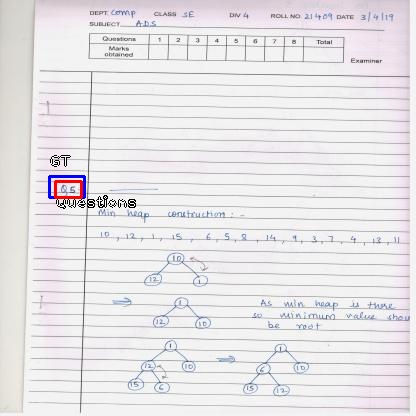 DEPT. Comp CLASS SE DIV 4 ROLL NO. 21409 DATE 3/4/19
SUBJECT ADS
Questions 1 2 3 4 5 6 7 8 Total
Marks obtained
Examiner
GT
Q5
Questions
Min heap construction :-
10 , 12 , 1 , 15 , 6 , 5 , 8 , 14 , 9 , 3 , 7 , 4 , 13 , 11
10
12 1
⇒ 1
12 10
As min heap is there
so minimum value shou
be root
1 ⇒ 1
12 10 6 10
15 6 15 12